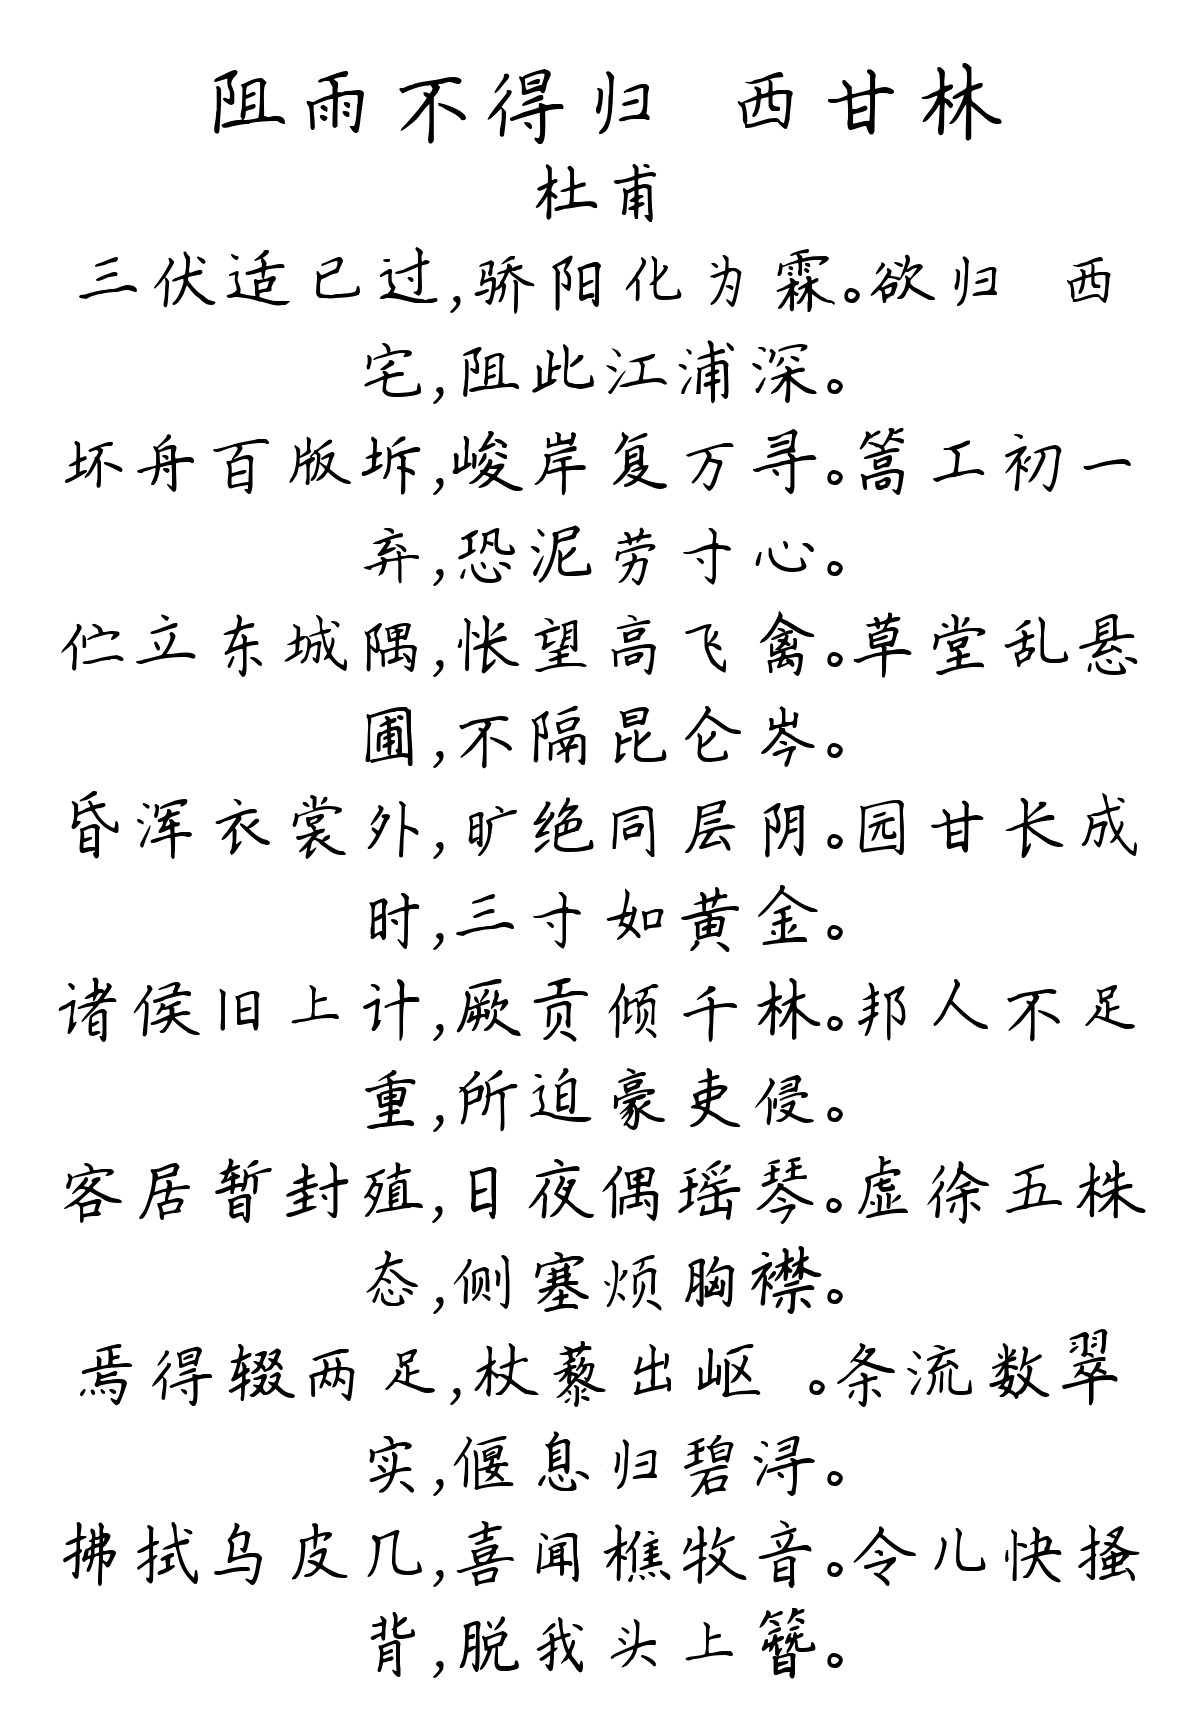 阻雨不得归 西甘林
杜甫
三伏适已过,骄阳化为霖。欲归 西
宅,阻此江浦深。
坏舟百版坼,峻岸复万寻。篙工初一
弃,恐泥劳寸心。
伫立东城隅,怅望高飞禽。草堂乱悬
圃,不隔昆仑岑。
昏浑衣裳外,旷绝同层阴。园甘长成
时,三寸如黄金。
诸侯旧上计,厥贡倾千林。邦人不足
重,所迫豪吏侵。
客居暂封殖,日夜偶瑶琴。虚徐五株
态,侧塞烦胸襟。
焉得辍两足,杖藜出岖 。条流数翠
实,偃息归碧浔。
拂拭乌皮几,喜闻樵牧音。令儿快搔
背,脱我头上簪。